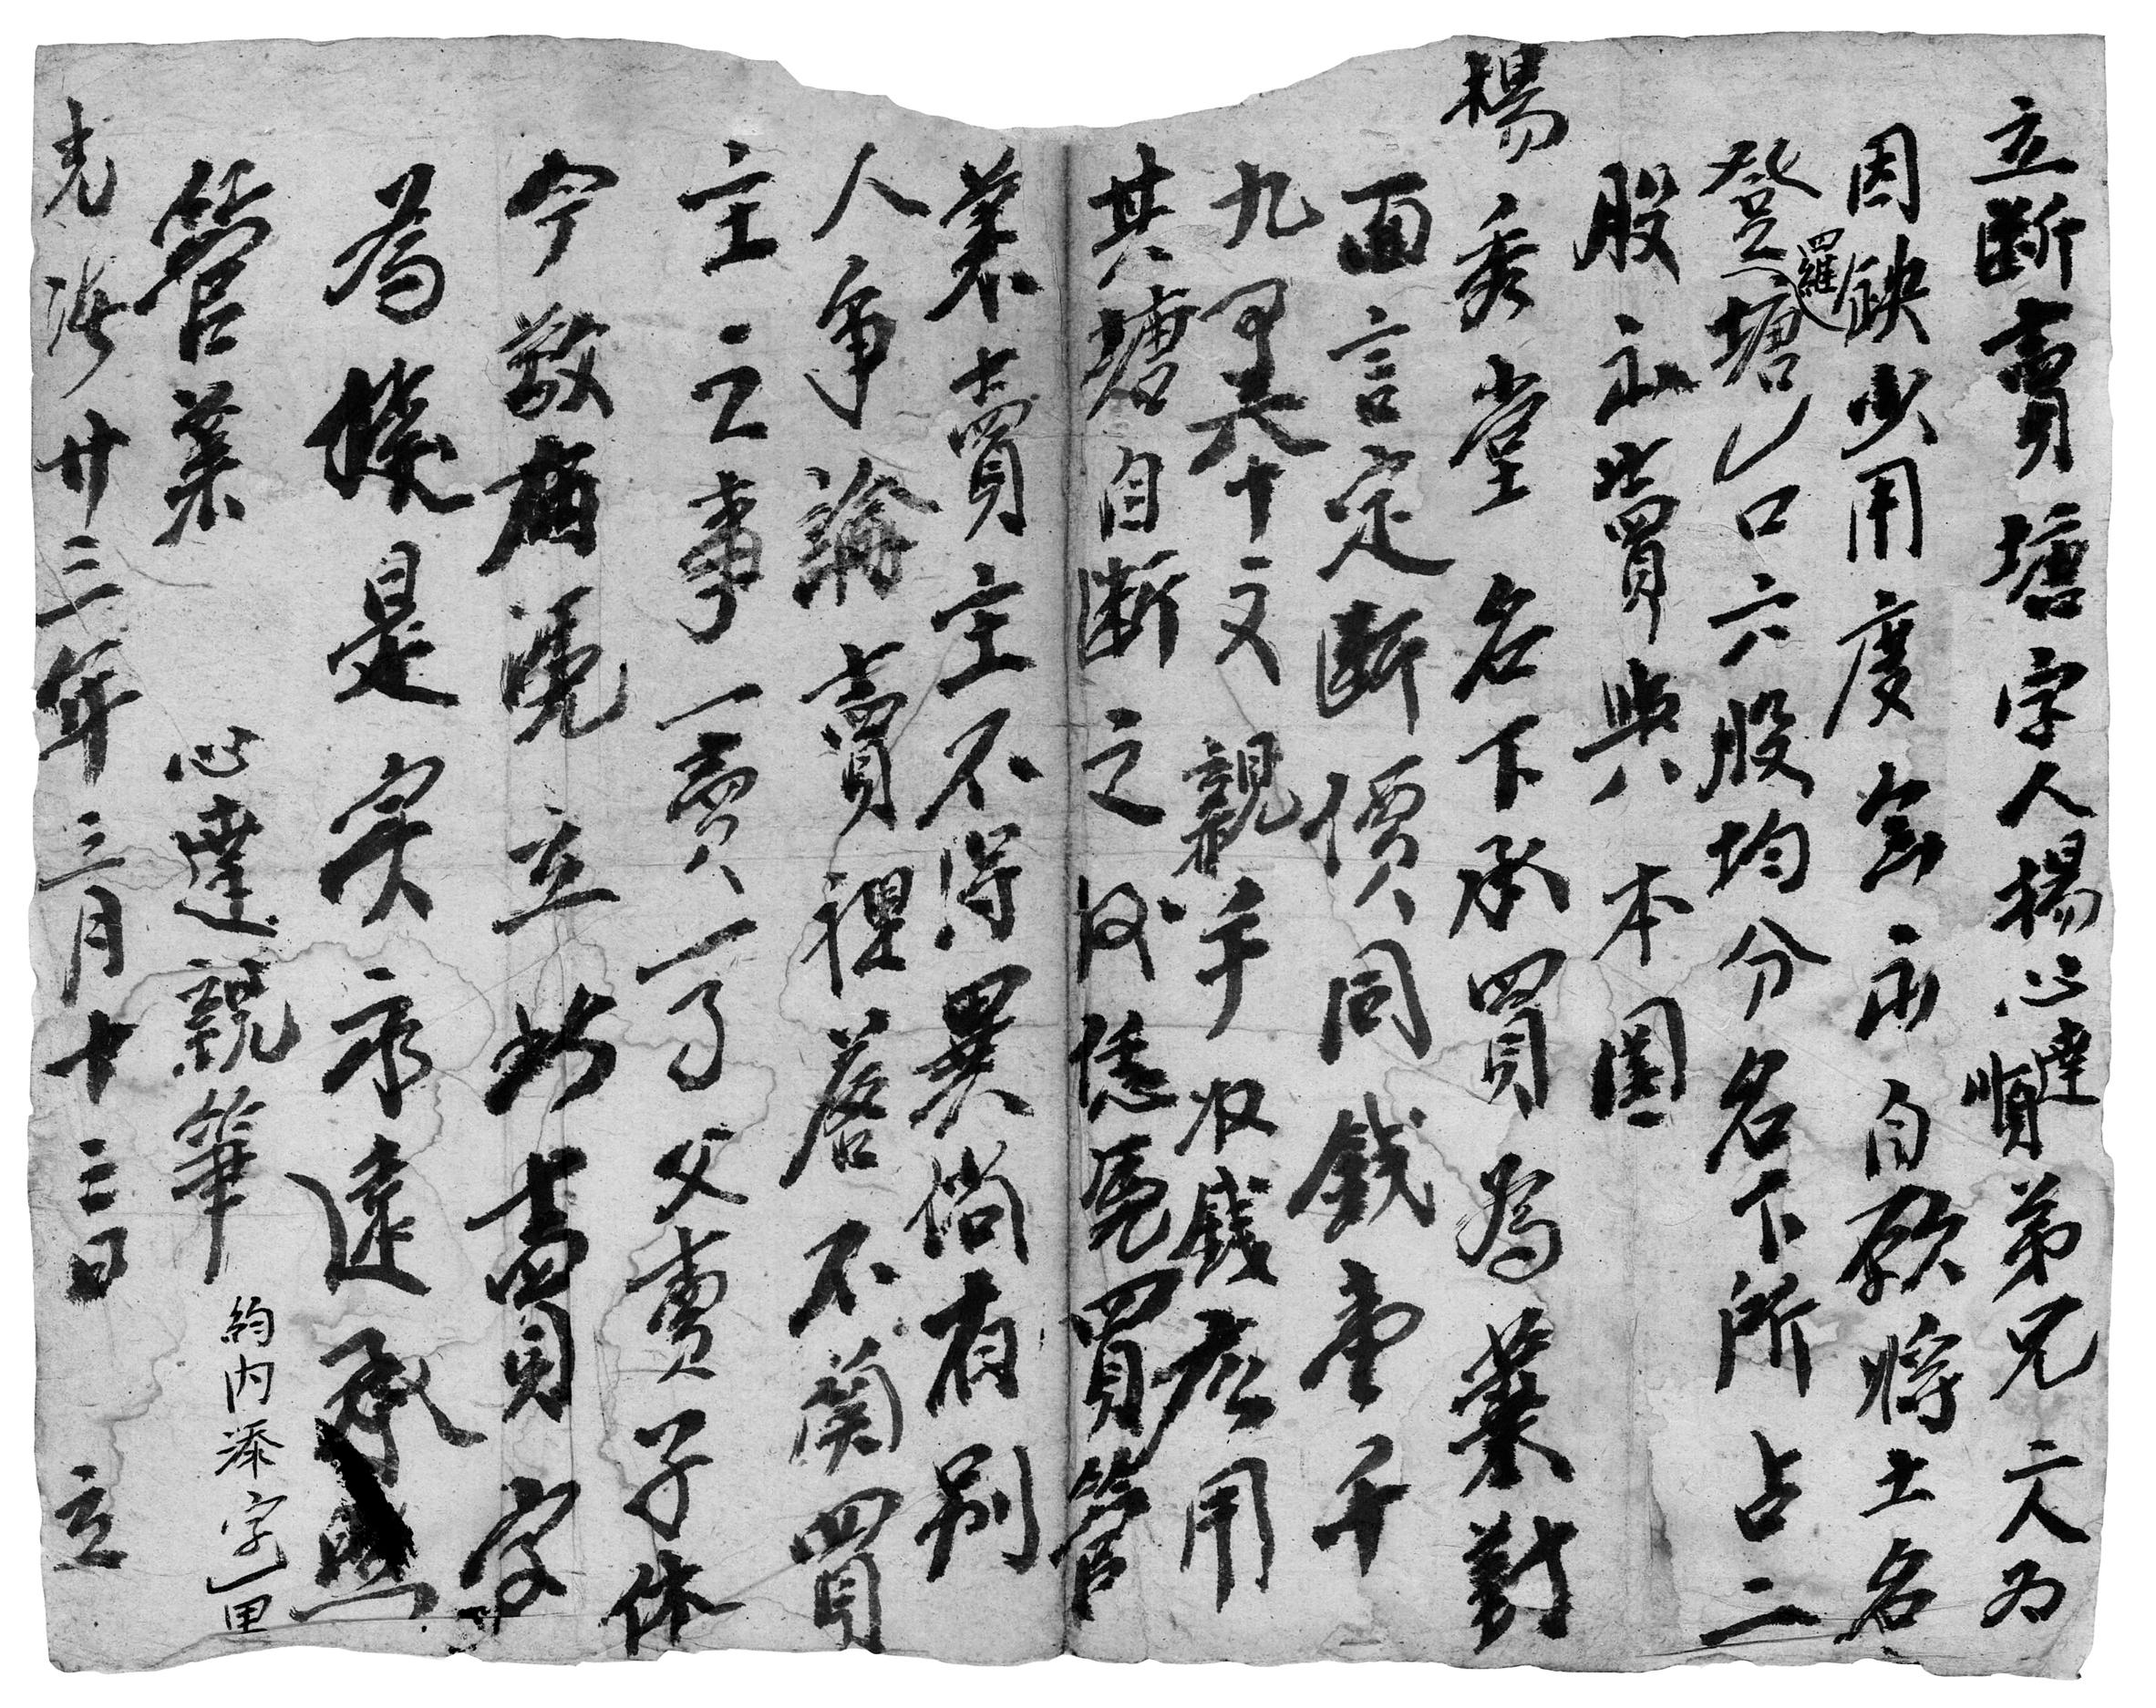 立断賣塘字人楊心達順弟兄二人为
因缺少用度自愿將土名
登羅塘乙口六股均分名下所占二
股出賣與本團
楊秀堂名下承買為業對
面言定断價同錢壹千
九百八十文親手收錢應用
其塘自断之後恁凴買管
業賣主不得異倘有別
人争論賣裡落不関買
主之事一賣一了父賣子休
今欲有凴立此賣字
為據是实永遠承照
管業
心達親筆
約内添字乙个
光緒廿三年三月十三日 立